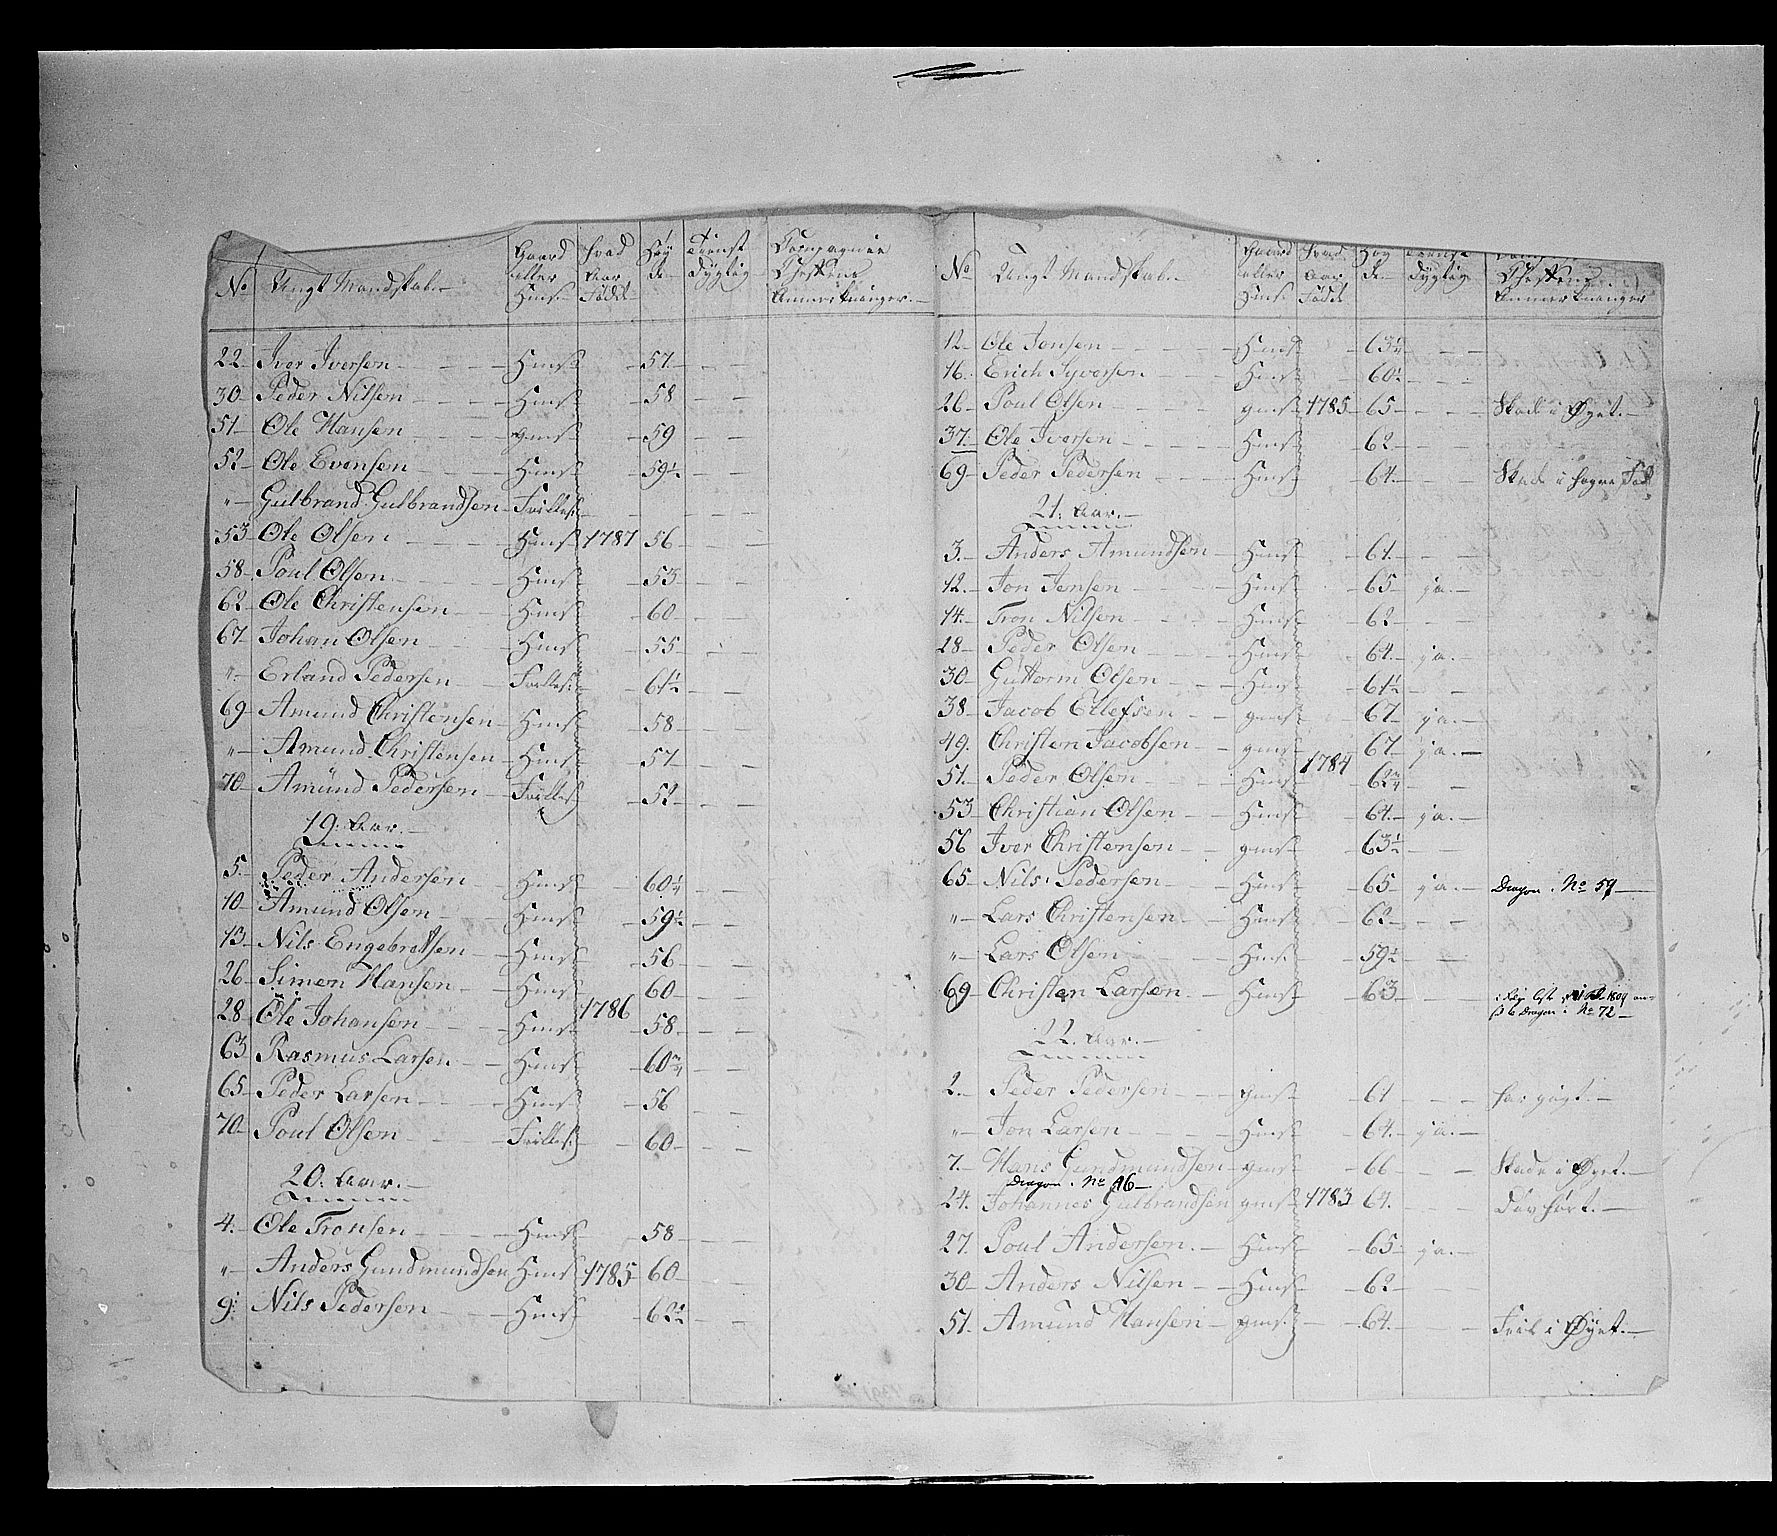 No Ungt Mandskab Gaard eller Huus hvad Aar Födt Höyde Tienst dygtig Compagnie Chefens Anmerkninger
22 Iver Iversen Huus 57
30 Peder Nilsen Huus 58
51 Ole Hansen gaus 59
52 Ole Evensen Huus 59½
" Gulbrand Gulbrandsen Frilles:
53 Ole Olsen Huus 1787 56
58 Poul Olsen Huus 53
62 Ole Christensen Huus 60
67 Johan Olsen Huus 55
" Erland Pedersen Frilles: 61½
69 Amund Christensen Huus 58
" Amund Christensen Huus 57
70 Amund Pedersen Frilles 52
19. Aar.
5. Peder Andersen Huus 60¼
10 Amund Olsen Huus 59½
13 Nils Engebretsen Huus 56
26 Simen Hansen Huus 60
28 Ole Johansen Huus 1786 58
63 Rasmus Larsen Huus 60¾
65 Peder Larsen Huus 56
70 Poul Olsen Frilles: 60
20. Aar.
4. Ole Tronsen Huus 58
" Anders Gundmundsen Huus 1785 60
9: Nils Pedersen Huus 62½
No Ungt Mandskab Gaard eller Huus hvad Aar Födt Höyde Tienst dygtig Chefens Anmerkninger
12 Ole Jonsen Huus 63½
16. Erich Syversen Huus 60½
26 Poul Olsen gaus 1785 65 Skade i Øyet.
37. Ole Iversen Huus 62
69 Peder Pedersen Huus 64. Skade i høyre Fod
21. Aar.
3. Anders Amundsen Huus 61.
12. Jon Jensen Huus 65 ja.
14. Tron Nilsen Huus 62
28 Peder Olsen Huus 64. ja.
30 Guttorm Olsen Huus 61½
38. Jacob Ellefsen gaus 67 ja.
49. Christen Jacobsen gaus 67 ja.
51. Peder Olsen Huus 1784 62¾
53 Christian Olsen Huus 64. ja.
56 Iver Christensen gaus 63½
65 Nils Pedersen Huus 65 ja. Dragon No 59
" Lars Christensen Huus 62
" Lars Olsen Huus 59½
69 Christen Larsen Huus 63 1809
Dragon No 72
22. Aar.
2. Peder Pedersen gaus 61 har gigt.
" Jon Larsen Huus 64. ja.
7. Hans Gundmundsen gaus 66 Skade i Øyet.
Dragon No 16
24. Johannes Gulbrandsen gaus 1783 64. Døvhørt.
27. Poul Andersen. Huus 65 ja.
30 Anders Nilsen Huus 62
51. Amund Hansen gaus. 64. Feil i Øyet.